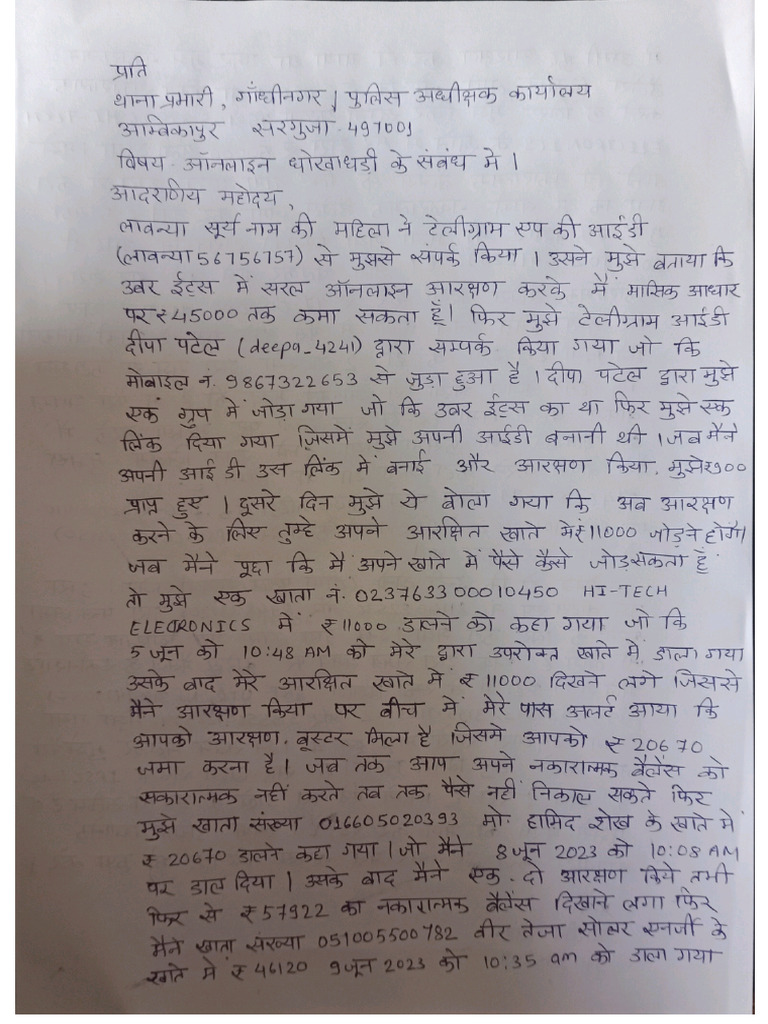 प्रति
थाना प्रभारी, गाँधीनगर, पुलिस अधीक्षक कार्यालय
अम्बिकापुर सरगुजा-497001
विषय-ऑनलाइन धोखाधड़ी के संबंध मे।
आदरणीय महोदय,
लावन्या सूर्य नाम की महिला ने टेलीग्राम एप की आईडी
(लावन्या56756757) से मुझसे संपर्क किया। उसने मुझे बताया कि
उबर ईट्स में सरल ऑनलाइन आरक्षण करके मैं मासिक आधार
पर ₹45000 तक कमा सकता हूँ। फिर मुझे टेलीग्राम आईडी
दीपा पटेल (deepa_4241) द्वारा सम्पर्क किया गया जो कि
मोबाइल नं. 9867322653 से जुड़ा हुआ है। दीपा पटेल द्वारा मुझे
एक ग्रुप में जोड़ा गया जो कि उबर ईट्स का था फिर मुझे एक
लिंक दिया गया जिसमें मुझे अपनी आईडी बनानी थी। जब मैने
अपनी आई डी उस लिंक में बनाई और आरक्षण किया. मुझे ₹900
प्राप्त हुए। दूसरे दिन मुझे ये बोला गया कि अब आरक्षण
करने के लिए तुम्हे अपने आरक्षित खाते में ₹11000 जोड़ने होगे।
जब मैने पूछा कि मैं अपने खाते में पैसे कैसे जोड़ सकता हूँ
तो मुझे एक खाता नं. 023763300010450 HI-TECH
ELECRONICS में ₹11000 डालने को कहा गया जो कि
5 जून को 10:48 AM को मेरे द्वारा उपरोक्त खाते में डाला गया
उसके बाद मेरे आरक्षित खाते में ₹11000 दिखने लगे जिससे
मैने आरक्षण किया पर बीच में मेरे पास अलर्ट आया कि
आपको आरक्षण. बूस्टर मिला है जिसमे आपको ₹20670
जमा करना है। जब तक आप अपने नकारात्मक बैलेंस को
सकारात्मक नहीं करते तब तक पैसे नहीं निकाल सकते फिर
मुझे खाता संख्या 016605020393 मो. हामिद शेख के खाते में
₹20670 डालने कहा गया। जो मैने 8 जून 2023 को 10:08 AM
पर डाल दिया। उसके बाद मैने एक. दो आरक्षण किये तभी
फिर से ₹57922 का नकारात्मक बैलेंस दिखाने लगा फिर
मैने खाता संख्या 051005500782 वीर तेजा सोलर एनर्जी के
खाते में ₹46120 9 जून 2023 को 10:35 am को डाला गया